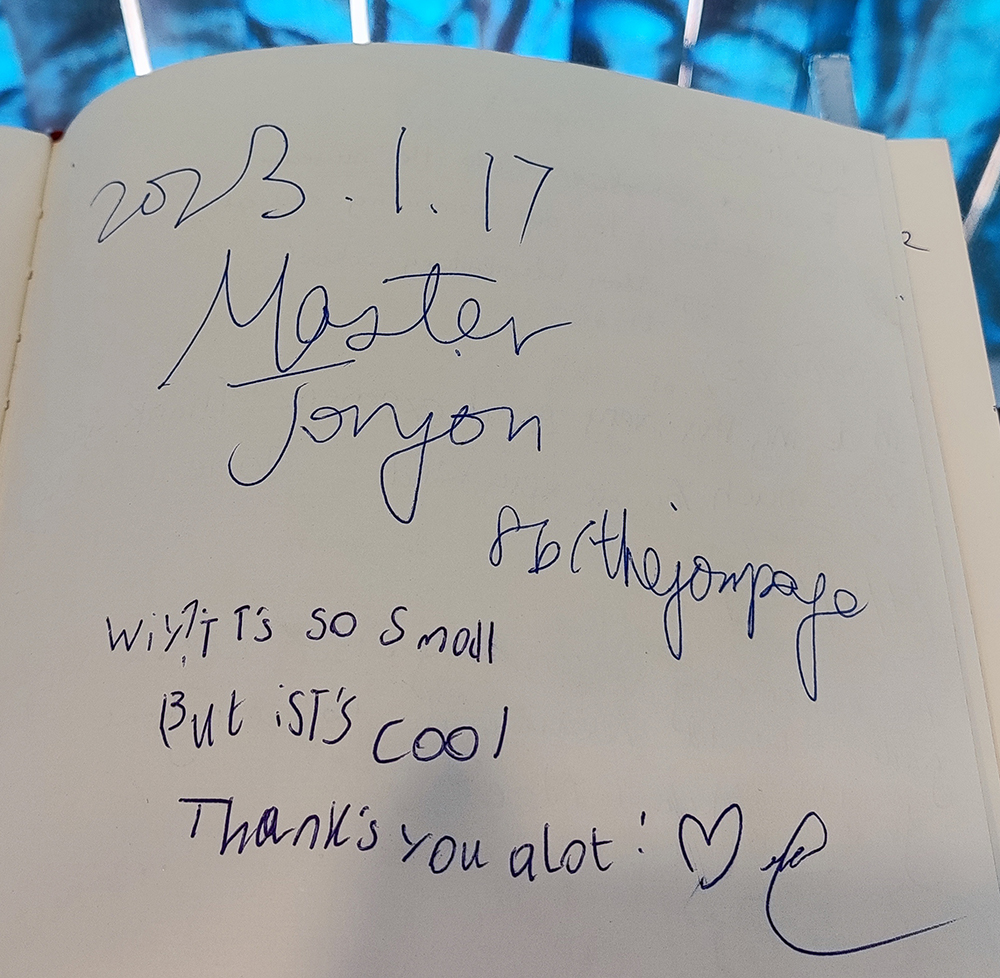 2023.1.17
Master
Jonyon
thejonpage
so small
But iST's cool
Thank's you alot! ♡
2